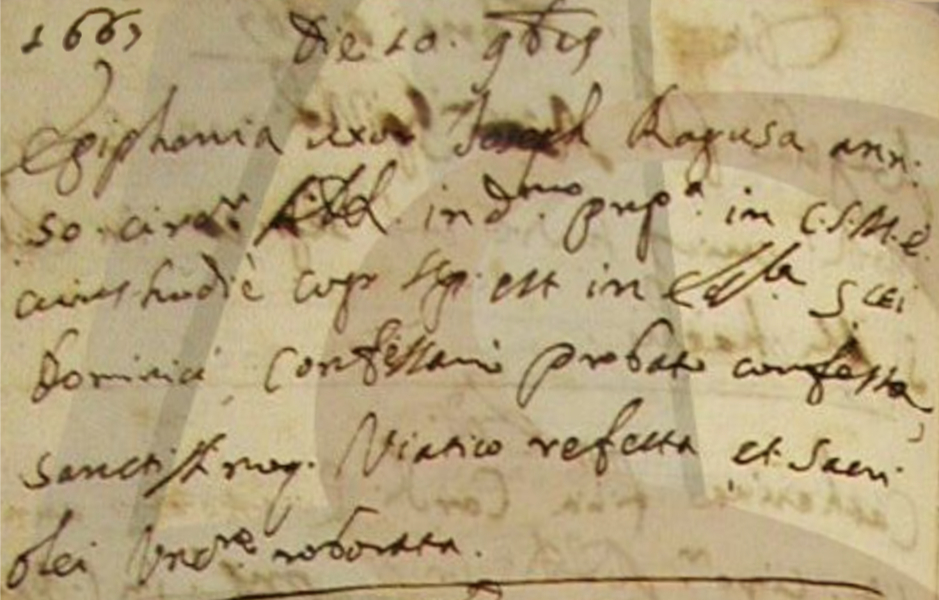 1667 Die 10. 9bris
Epiphania uxor Joseph Ragusa ann.
50. circ.r in d.mo prop.a in C.S.M.E.
cuius hodiè corp. est in Ecc.a S.cti
Dominici Confessario probato confessa,
sanctiss. Viatico refecta et Sacri
olei Unct.ne roborata.